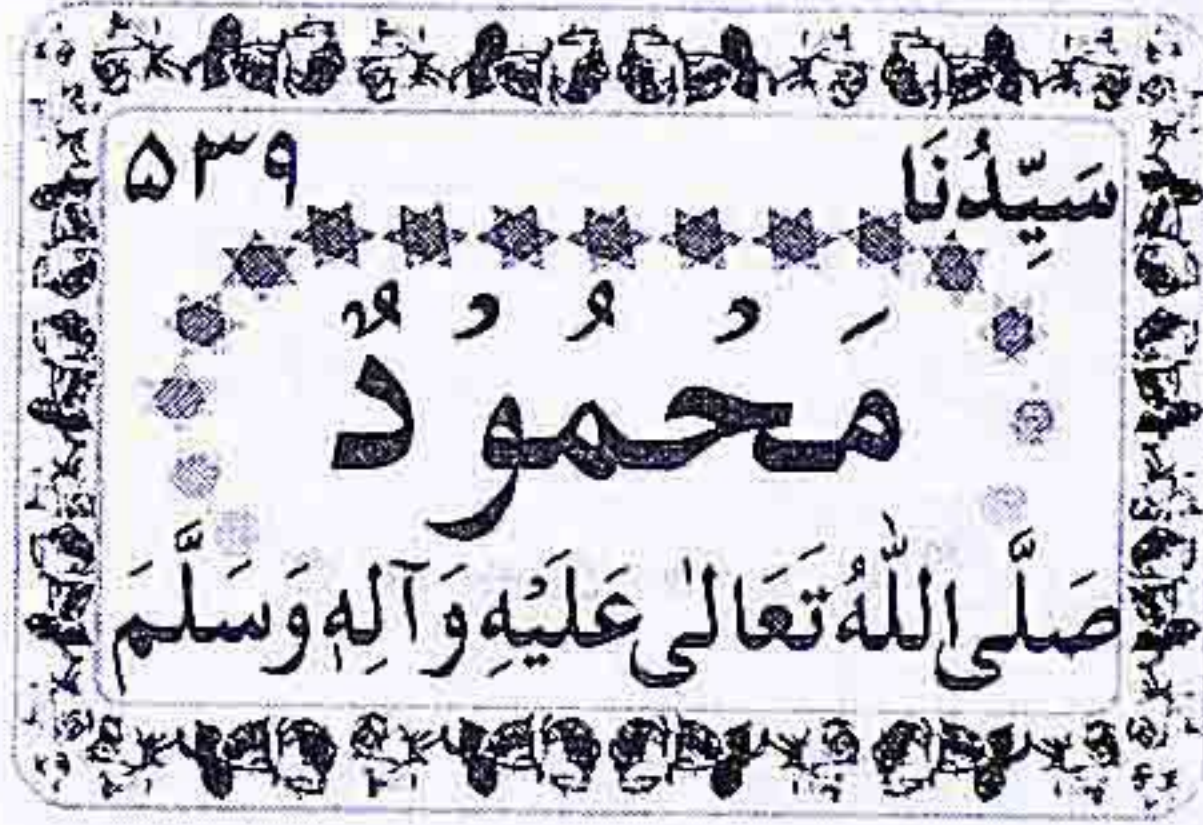 سَيِّدُنَا ۵۳۹
مَحْمُوْدٌ
صَلَّى اللّٰهُ تَعَالٰى عَلَيْهِ وَآلِهٖ وَسَلَّمَ